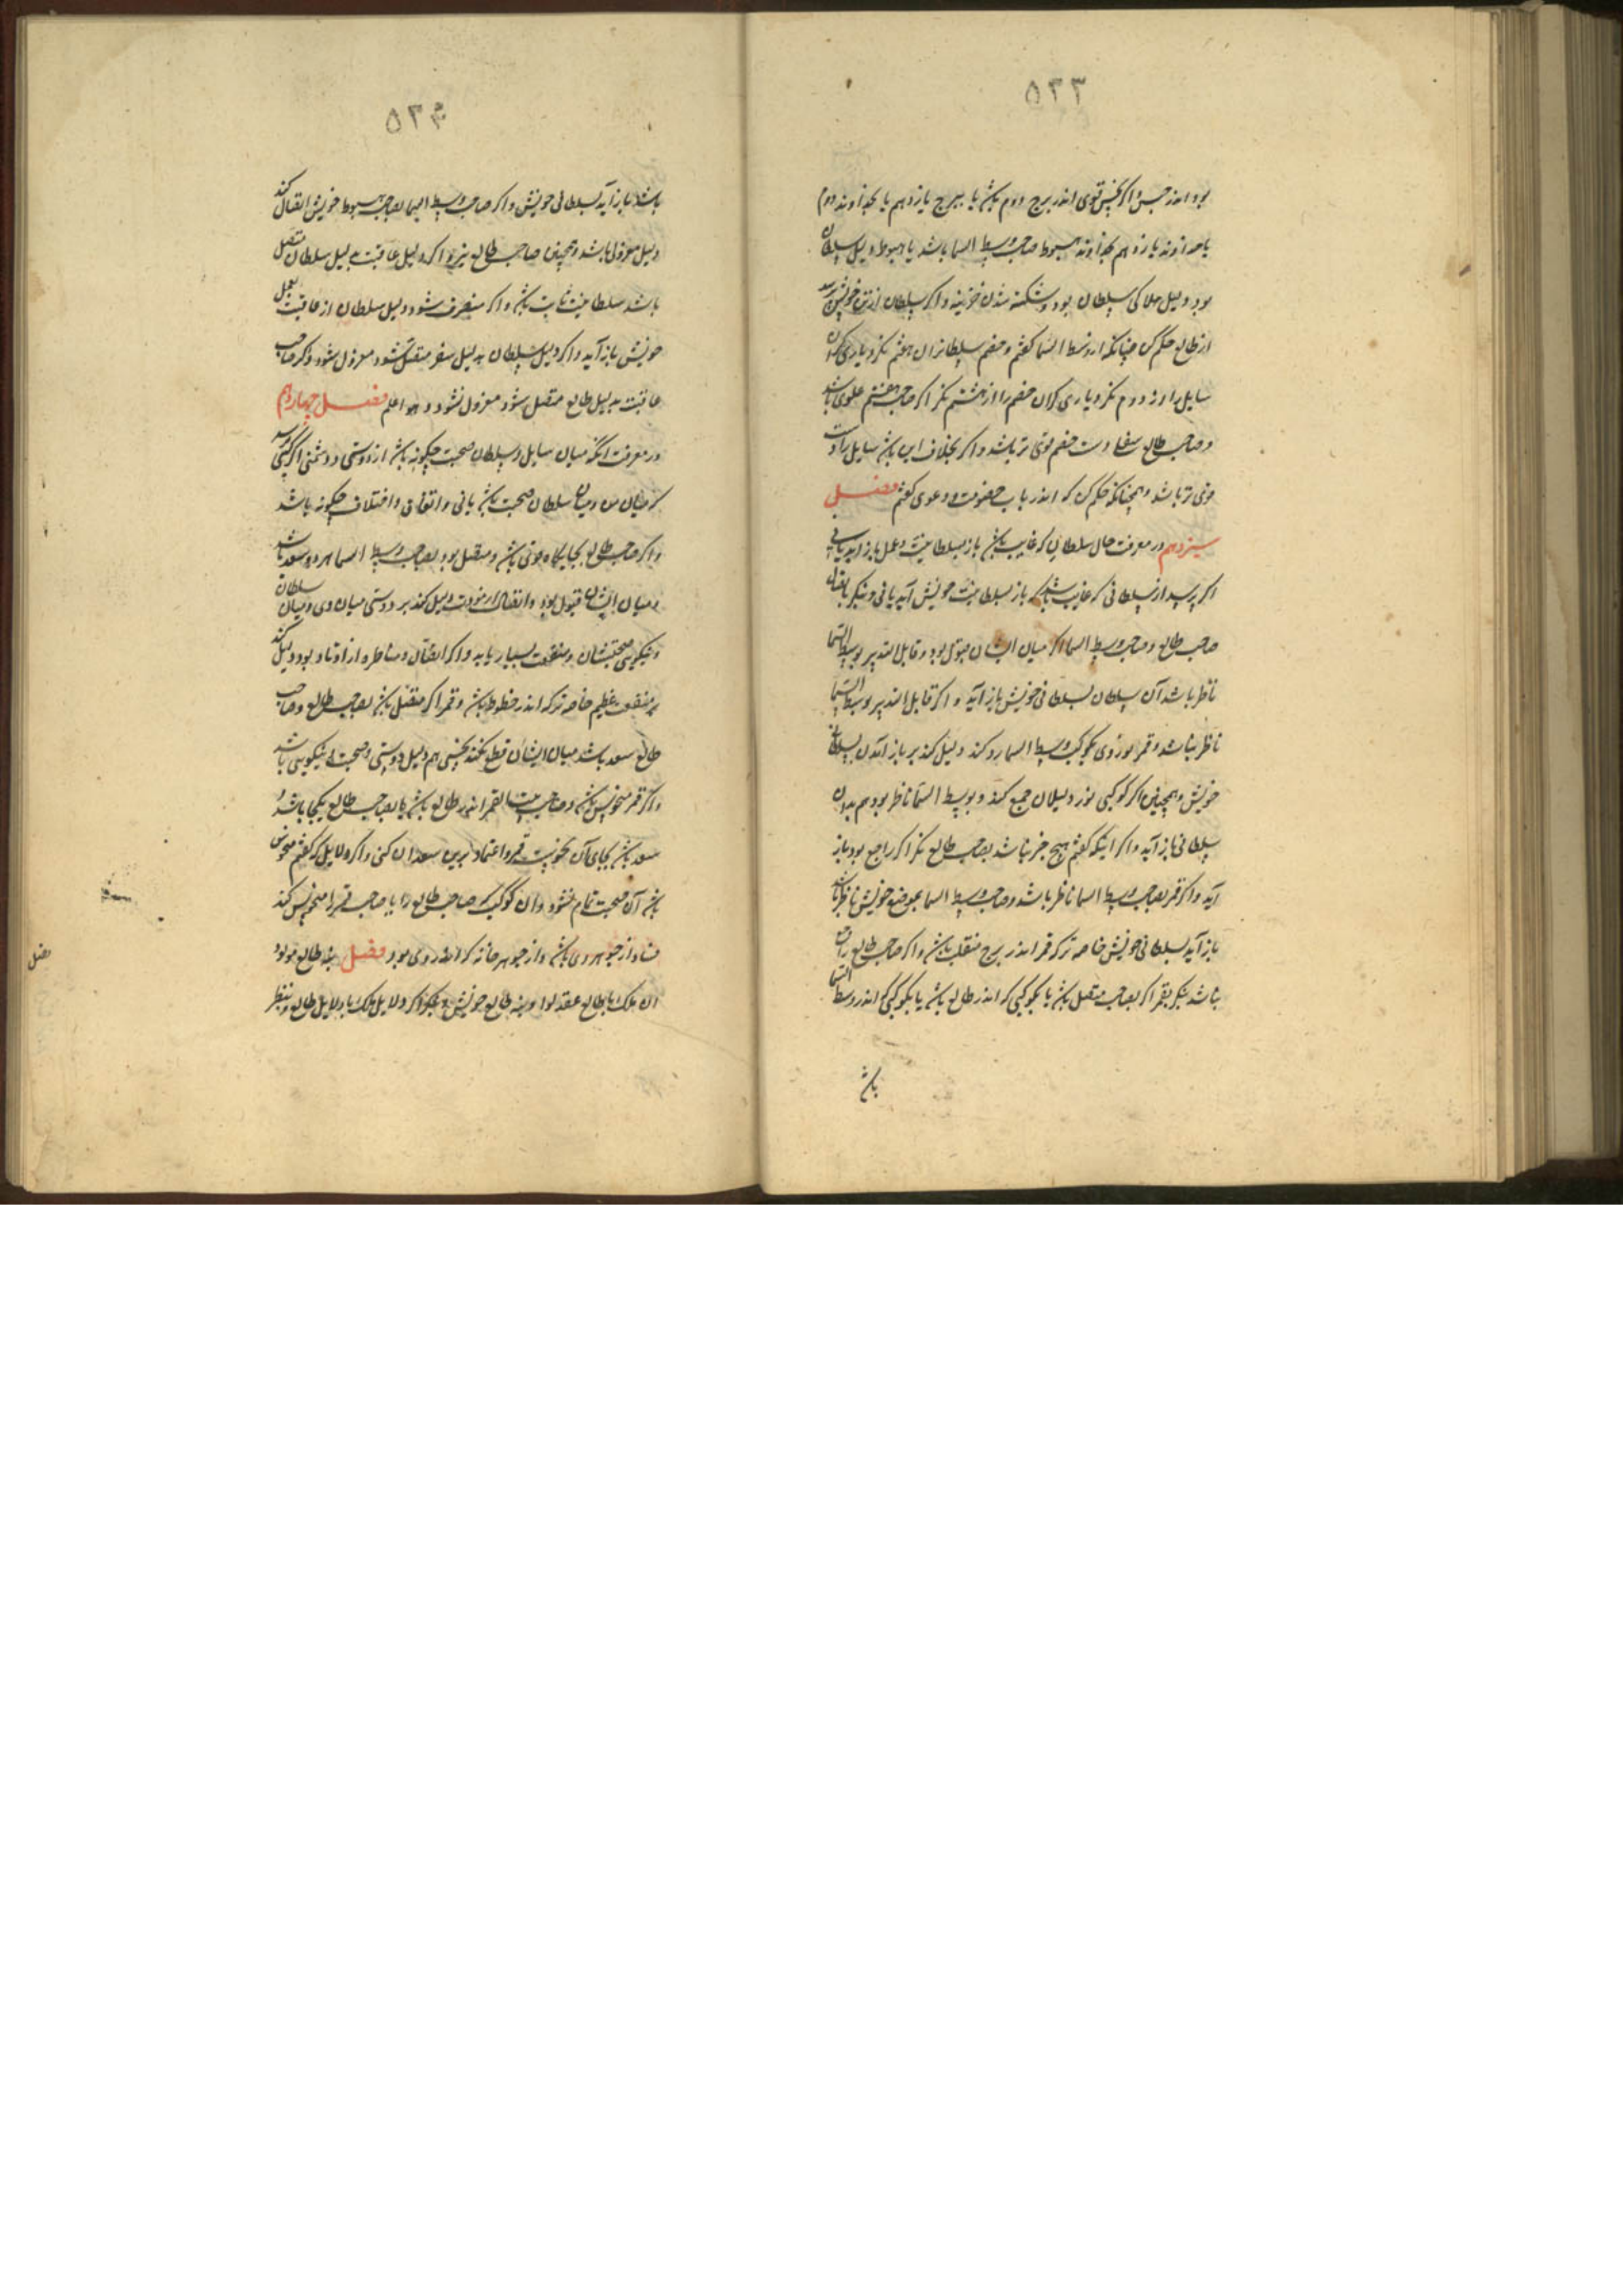 ۵۲۳
بود اندر حبس و اگر نحس قوی اندر برج دوم باشد یا ببرج یازدهم یا بخداوند دوم
یا خداوند یازدهم بخداوند هبوط صاحب وسط السما باشد یا هبوط دلیل سلطان
بود دلیل هلاکی سلطان بود و شکسته شدن خزینه و اگر سلطان از تن خویش پرسد
از طالع حکم کن چنانکه از وسط السما گفتم و خصم سلطانرا از هفتم نگر و یاری گران
سایل را از دوم نگر و یاری گران خصم را از هشتم نگر اگر صاحب هفتم علوی باشد
و صاحب طالع سفلی دست خصم قوی تر باشد و اگر بخلاف این باشد سایل را دست
قوی تر باشد و همچنانکه حکم کن که اندر باب خصومت و دعوی گفتم فصل
سیزدهم در معرفت حال سلطان که غایب باشد باز بسلطانیت و عمل باز آید یا نی
اگر پرسد از سلطانی که غایب شد که باز بسلطانیت خویش آید یا نی بنگر باتصال
صاحب طالع و صاحب وسط السما اگر میان ایشان قبول بود و قابل التدبیر بوسط السما
ناظر باشد آن سلطان بسلطانی خویش باز آید و اگر قابل التدبیر بوسط السما
ناظر نباشد و قمر نور وی بکوکب وسط السما رد کند دلیل کند بر باز آمدن بسلطانی
خویش و همچنین اگر کوکبی نور دلیلان جمع کند و بوسط السما ناظر بود هم بدان
سلطانی باز آید و اگر اینکه گفتم هیچ خبر نباشد بصاحب طالع نگر اگر راجع بود باز
آید و اگر قمر بصاحب وسط السما ناظر باشد و صاحب وسط السما بموضع خویش ناظر باشد
باز آید بسلطانی خویش خاصه تر که قمر اندر برج منقلب باشد و اگر صاحب طالع راجع
نباشد بنگر بقمر اگر بصاحب متصل باشد یا بکوکبی که اندر طالع باشد یا بکوکبی که اندر وسط السما
باشد
۵۲۴
باشد باز آید بسلطانی خویش و اگر صاحب وسط السما بصاحب هبوط خویش اتصال کند
دلیل معزولی باشد و همچنین صاحب طالع نیز و اگر دلیل عاقبت بدلیل سلطان متصل
باشد سلطانیت ثابت باشد و اگر منصرف شود دلیل سلطان از عاقبت بعمل
خویش باز آید و اگر دلیل سلطان بدلیل سفر متصل شود معزول شود و اگر صاحب
عاقبت بدلیل طالع متصل شود معزول نشود و هو اعلم فصل چهاردهم
در معرفت آنکه میان سایل و سلطان صحبت چگونه باشد از دوستی و دشمنی اگر کسی پرسد
که میان من و میان سلطان صحبت باشد یا نی و اتفاق و اختلاف چگونه باشد
و اگر صاحب طالع بجایگاه قوی باشد و متصل بود بصاحب وسط السما هر دو سعد باشد
و میان ایشان قبول بود و اتصال از مودت دلیل کند بر دوستی میان وی و میان سلطان
و نیکویی صحبتشان و منفعت بسیار یابد و اگر اتصال و مناظره از اوتاد بود دلیل کند
بر منفعت عظیم خاصه تر که اندر حظوظ باشد و قمر اگر متصل باشد بصاحب طالع و صاحب
طالع سعد باشد میان ایشان قطع نکند نحسی هم دلیل دوستی و صحبت نیکویی باشد
و اگر قمر منحوس باشد و صاحب بیت القمر اندر طالع باشد یا بصاحب طالع یکجا باشد و
سعد باشد بجای آن نحوست قمر و اعتماد برین سعدان کنی و اگر دلایل که گفتم منحوس
باشد آن صحبت تمام نشود و آن کوکب که صاحب طالع را یا صاحب قمر را منحوس کند
فساد از جوهر وی باشد و از جوهر خانه که اندر وی بود فصل بنه طالع مولود
آن ملک یا طالع عقد لوا و بنه طالع خویش و بنگر اگر دلایل ملک با دلایل طالع تو بنظر
فصل